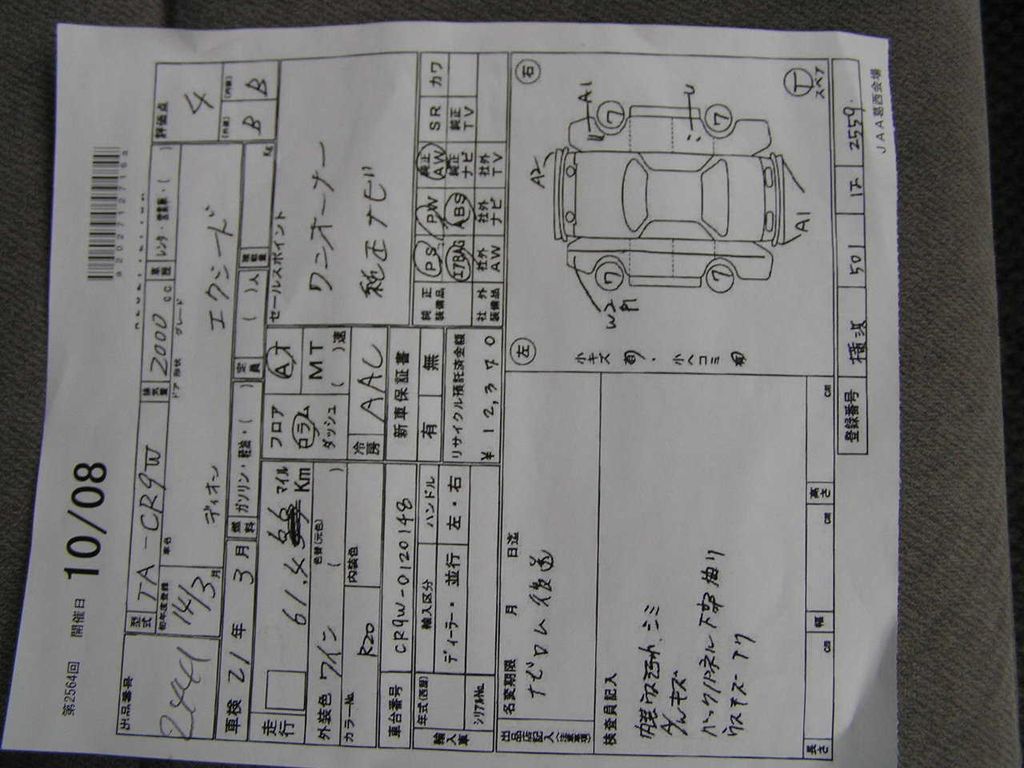 第2564回 開催日 10/08
出品番号 2441
型式 TA-CR9W 排気量 2000cc 車歴 レンタ・営業車・( ) 評価点 4
初年度登録 14/3月 車名 ディオン ドア 形状 グレード エクシード (外装) B (内装) B
車検 21年 3月 燃料 ガソリン・軽油・( ) 定員 ( )人 積載量 Kg
走行 61.4 マイル Km
フロア コラム ダッシュ
AT MT ( )速
セールスポイント
ワンオーナー
純正ナビ
外装色 ワイン 色替(元色) ( )
カラーNo. R20 内装色
冷房 AAC
車台番号 CR9W-0120148
新車保証書 有 無
純正装備品 PS PW 純正AW SR カワ
エアB ABS 純正ナビ 純正TV
社外装備品 社外AW 社外ナビ 社外TV
輸入車 年式(西暦) 輸入区分 ハンドル
ディーラー・並行 左・右
シリアルNo.
リサイクル預託済金額
¥12,370
名変期限 月 日迄
ナビロム後送
検査員記入
バックパネル下部曲り
左 右
A2 A1 U A1 W2
7 7 7 7
小キズ有・小ヘコミ有
T スペア
長さ cm 幅 cm 高さ cm
登録番号 501 2559
JAA葛西会場